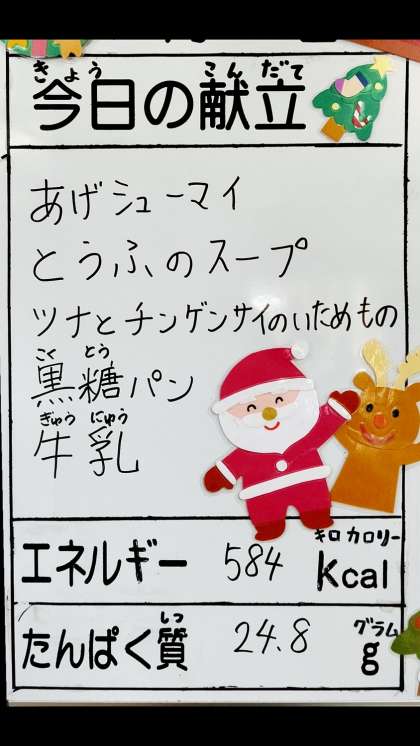 きょう こんだて
今日の献立
あげシューマイ
とうふのスープ
ツナとチンゲンサイのいためもの
こくとう
黒糖パン
ぎゅうにゅう
牛乳
キロカロリー
エネルギー 584 Kcal
しつ グラム
たんぱく質 24.8 g